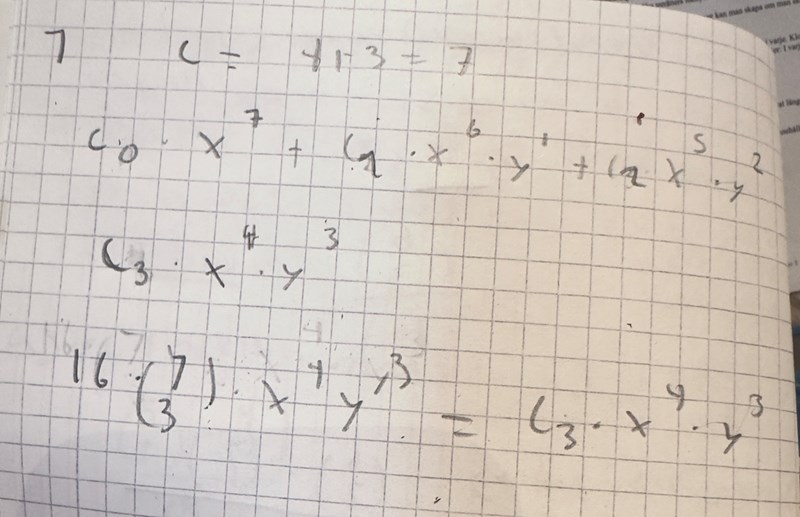 7 c = 4+3 = 7
c₀ · x⁷ + c₁ · x⁶ · y¹ + c₂ x⁵ · y²
c₃ · x⁴ · y³
16 · (7 3) · x⁴ y³ = c₃ · x⁴ · y³